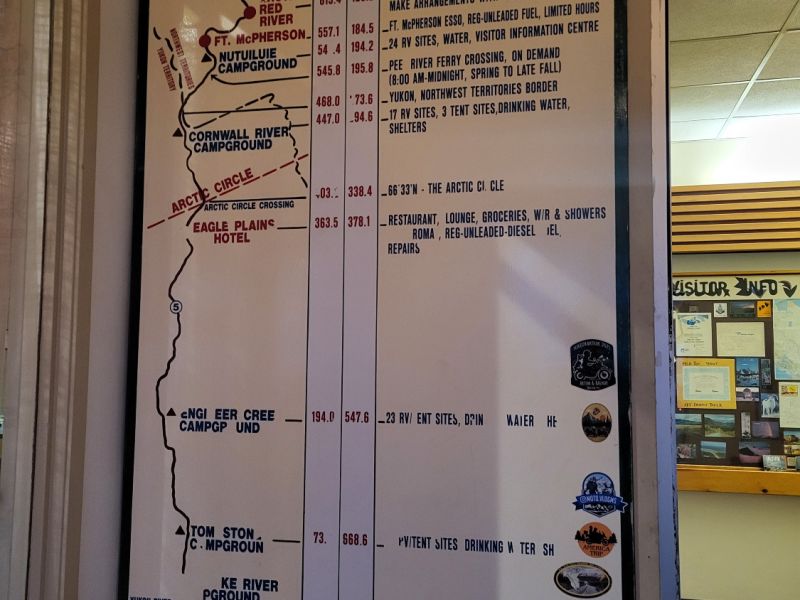 MAKE ARRANGEMENTS WITH
RED
RIVER
FT. McPHERSON 557.1 184.5 FT. McPHERSON ESSO, REG-UNLEADED FUEL, LIMITED HOURS
NUTUILUIE
CAMPGROUND 54 .4 194.2 24 RV SITES, WATER, VISITOR INFORMATION CENTRE
545.8 195.8 PEE RIVER FERRY CROSSING, ON DEMAND
(8:00 AM-MIDNIGHT, SPRING TO LATE FALL)
NORTHWEST TERRITORIES
YUKON TERRITORY
468.0 73.6 YUKON, NORTHWEST TERRITORIES BORDER
CORNWALL RIVER
CAMPGROUND 447.0 94.6 17 RV SITES, 3 TENT SITES,DRINKING WATER,
SHELTERS
ARCTIC CIRCLE
ARCTIC CIRCLE CROSSING 03. 338.4 66°33'N - THE ARCTIC CI CLE
EAGLE PLAINS
HOTEL 363.5 378.1 RESTAURANT, LOUNGE, GROCERIES, W/R & SHOWERS
ROMA , REG-UNLEADED-DIESEL EL,
REPAIRS
5
ENGI EER CREE
CAMPG UND 194.0 547.6 23 RV/ ENT SITES, DRIN WATER HE
TOM STON
C MPGROUN 73. 668.6 RV/TENT SITES DRINKING W TER SH
KE RIVER
PGROUND
AMERICA
TRIP
VISITOR INFO